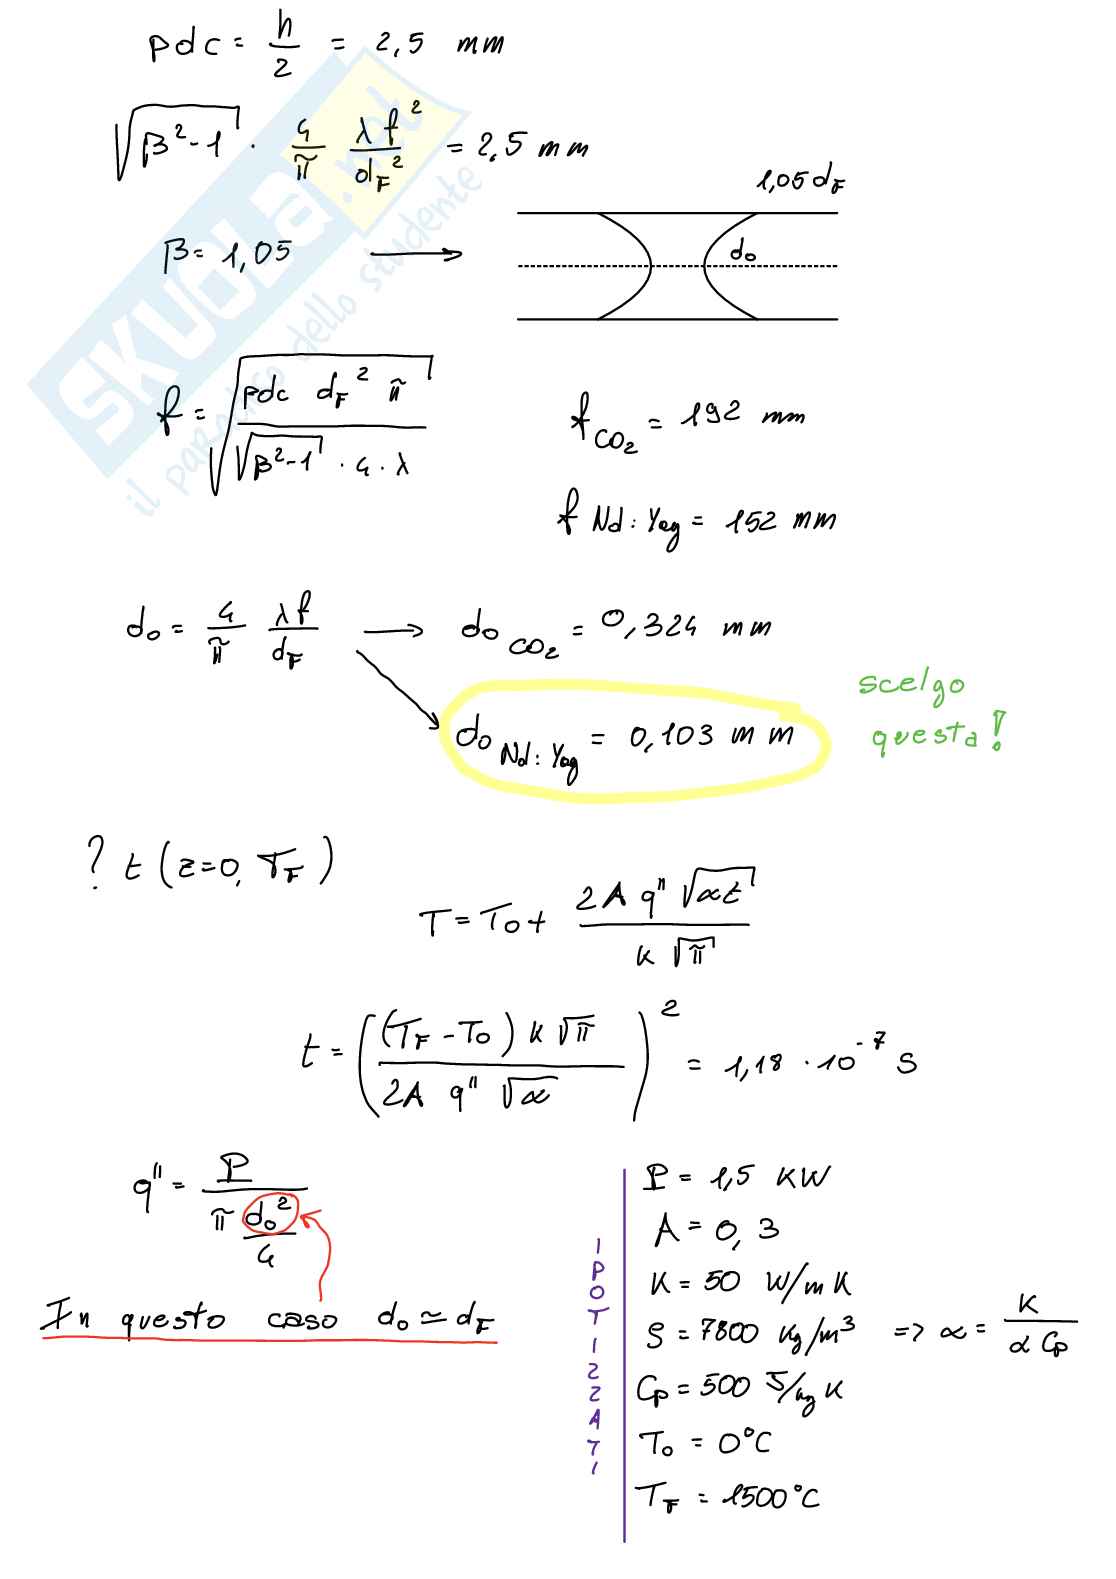 pdc = h/2 = 2,5 mm
√(β²-1) · 4/π λf²/d_F² = 2,5 mm
1,05 d_F
β = 1,05 →
d₀
f = √(pdc d_F² π / (√(β²-1) · 4 · λ))
f_CO₂ = 192 mm
f Nd:Yag = 152 mm
d₀ = 4/π λf/d_F → d₀ CO₂ = 0,324 mm
d₀ Nd:Yag = 0,103 mm
scelgo
questa!
? t (z=0, T_F)
T = T₀ + 2A q" √(αt) / (k √π)
t = ((T_F - T₀) k √π / (2A q" √α))² = 1,18 · 10⁻⁷ s
q" = P / (π d₀²/4)
In questo caso d₀ ≃ d_F
IPOTIZZATI
P = 1,5 KW
A = 0,3
K = 50 W/m K
ρ = 7800 Kg/m³ => α = K / (α Cp)
Cp = 500 J/kg K
T₀ = 0°C
T_F = 1500°C
SKUOLA.net
il paradiso dello studente